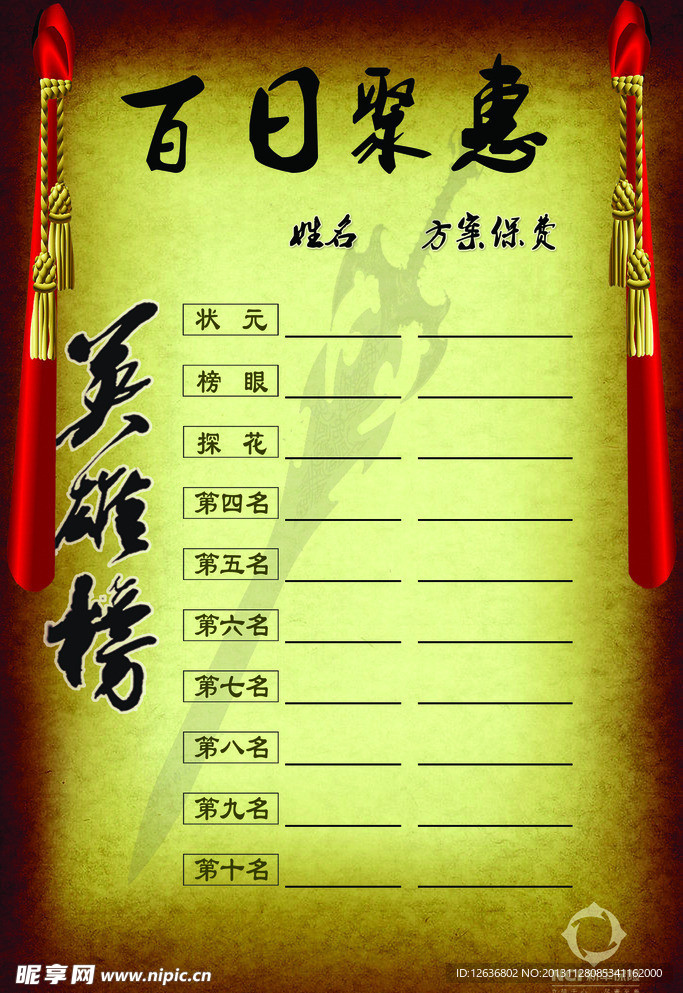 百日聚惠
姓名 方案保费
英雄榜
状元
榜眼
探花
第四名
第五名
第六名
第七名
第八名
第九名
第十名
NCI 新华保险
昵享网 www.nipic.cn
ID:12636802 NO:20131128085341162000